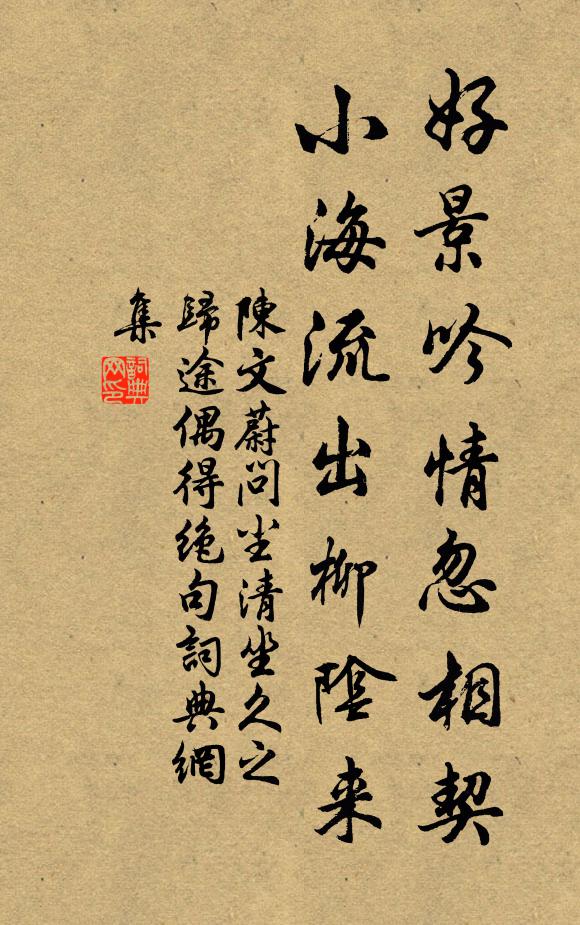 好景吟情忽相契
小海流出柳陰来
陳文蔚問坐清坐久之
歸途偶得絶句詞典網
集
詞典
网印